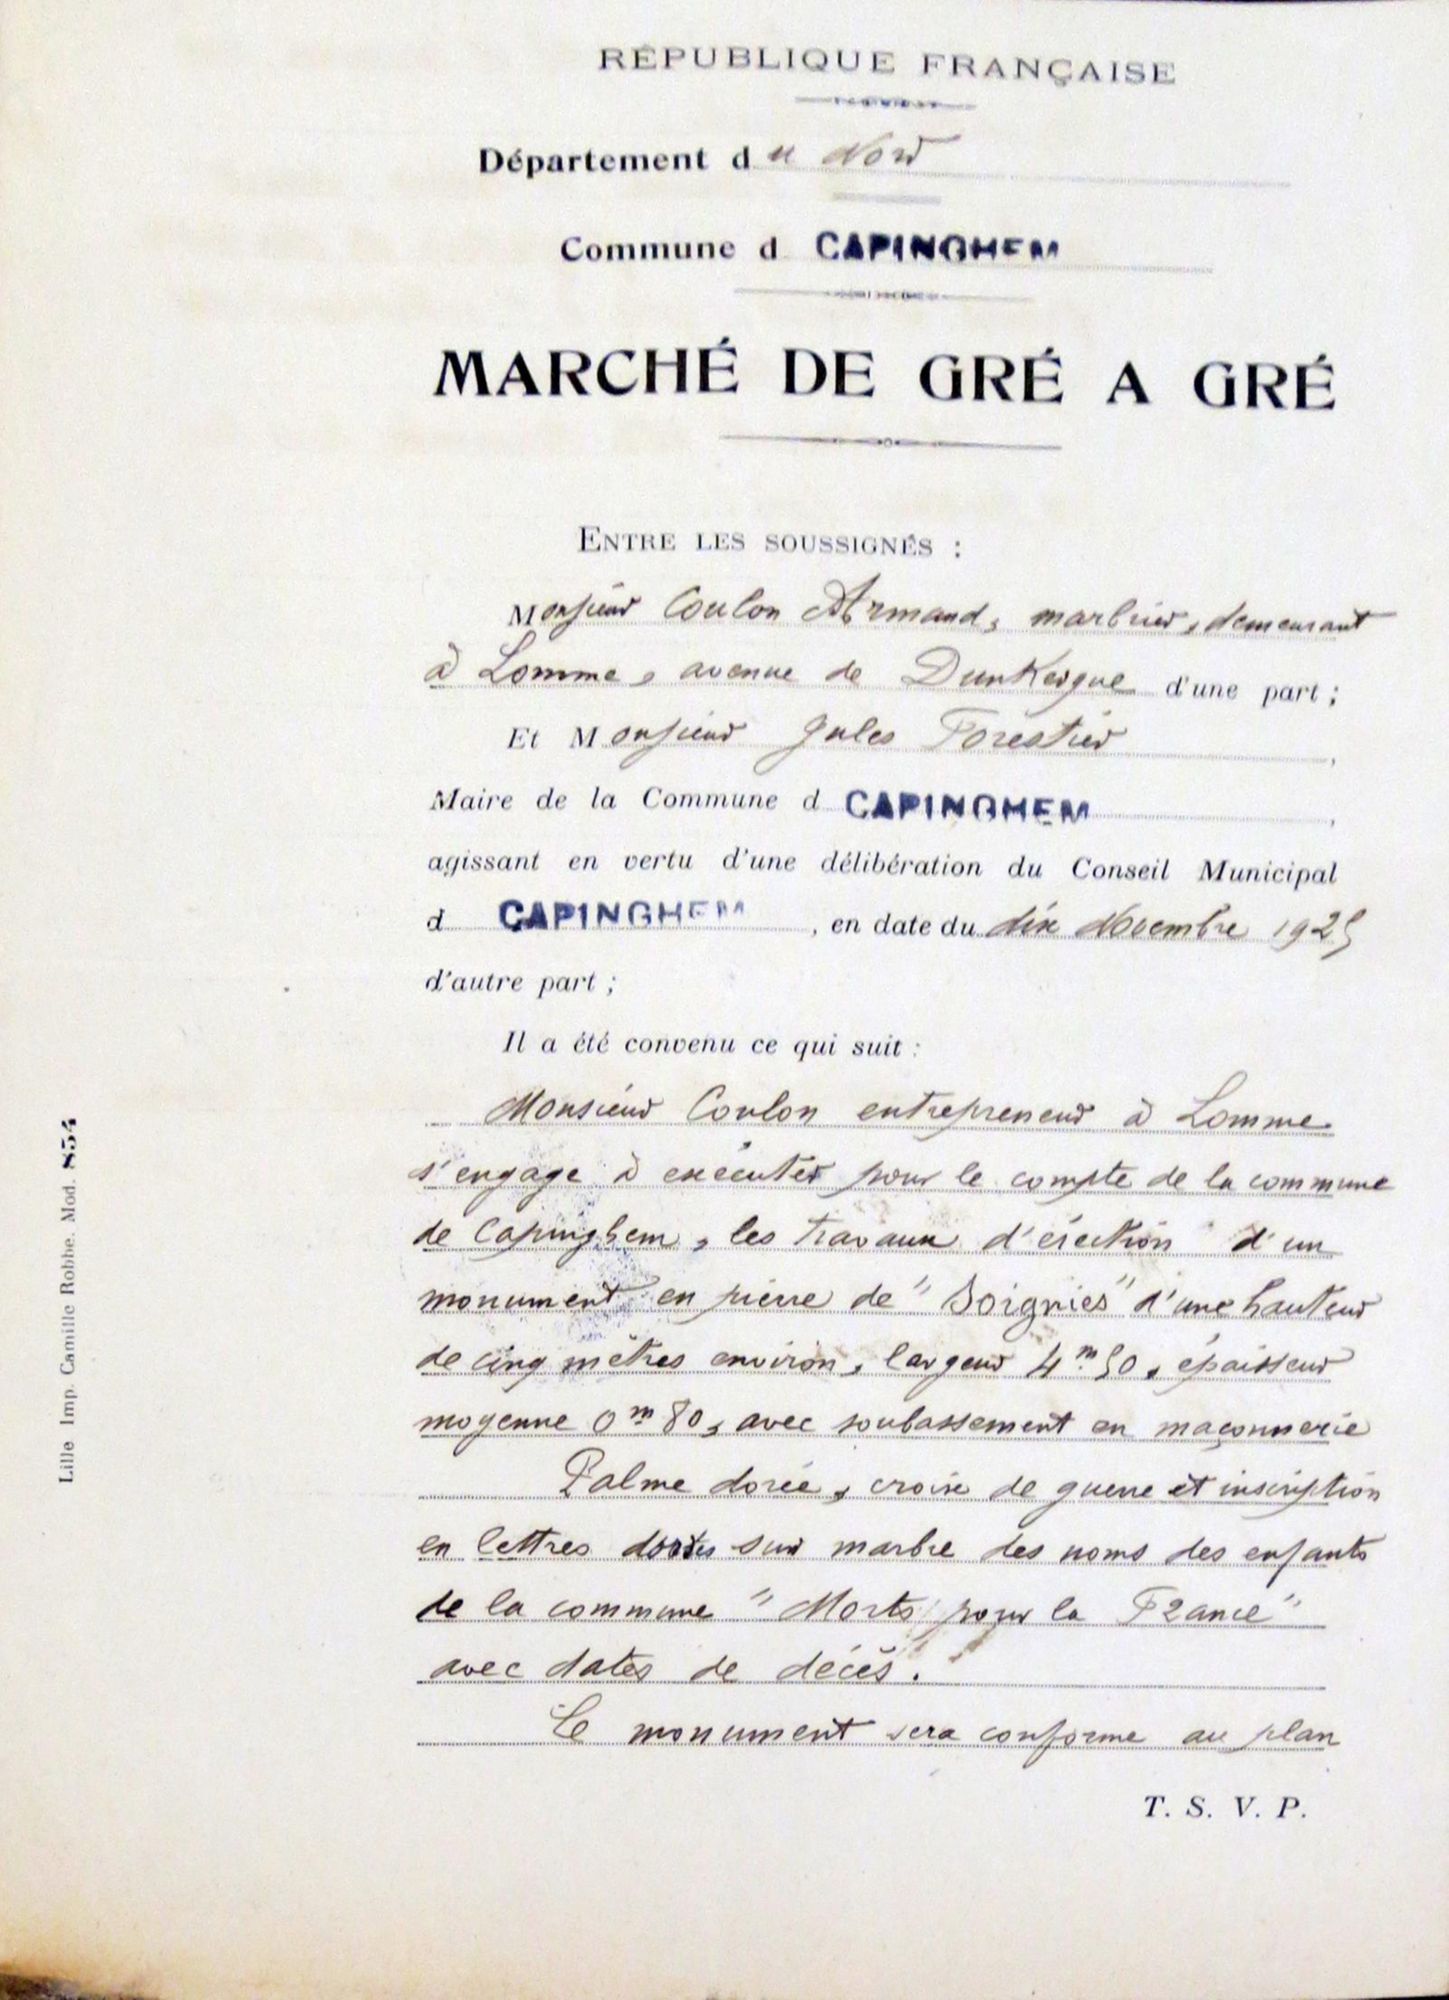 RÉPUBLIQUE FRANÇAISE
Département du Nord
Commune d CAPINGHEM
MARCHÉ DE GRÉ A GRÉ
ENTRE LES SOUSSIGNÉS :
Monsieur Coulon Armand, marbrier, demeurant
à Lomme, avenue de Dunkerque d'une part ;
Et Monsieur Jules Forestier,
Maire de la Commune d CAPINGHEM,
agissant en vertu d'une délibération du Conseil Municipal
d CAPINGHEM, en date du dix Novembre 1925
d'autre part ;
Il a été convenu ce qui suit :
Monsieur Coulon entrepreneur à Lomme
s'engage à exécuter pour le compte de la commune
de Capinghem, les travaux d'érection d'un
monument en pierre de "Soignies" d'une hauteur
de cinq mètres environ, largeur 4m50, épaisseur
moyenne 0m80, avec soubassement en maçonnerie
Palme dorée, croix de guerre et inscription
en lettres dorées sur marbre des noms des enfants
de la commune "Morts pour la France"
avec dates de décès.
Le monument sera conforme au plan
T. S. V. P.
Lille Imp. Camille Robbe. Mod. 854